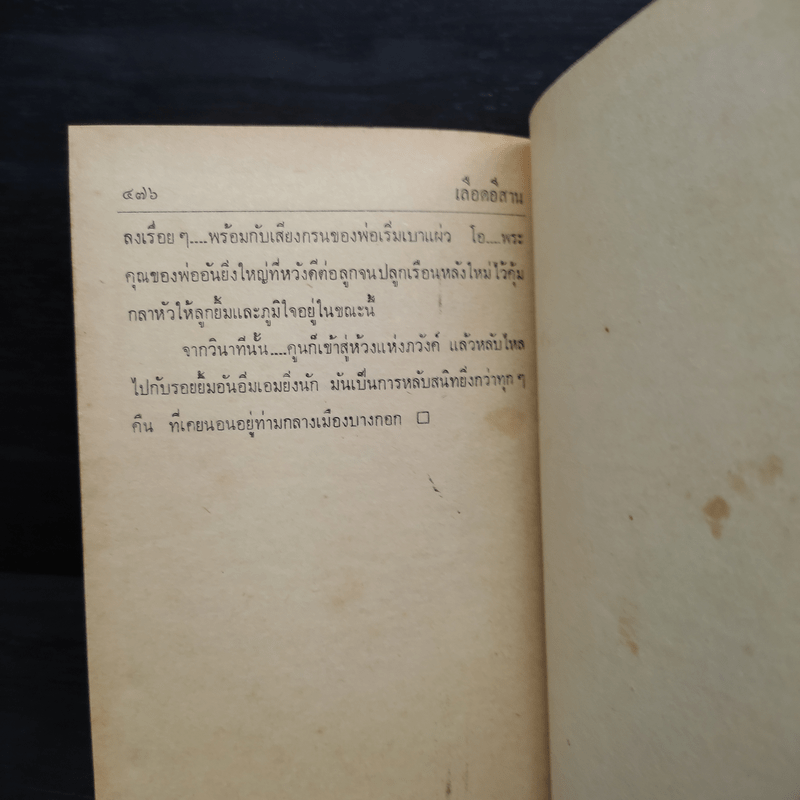 ๔๗๖ เลือดอีสาน
ลงเรื่อย ๆ....พร้อมกับเสียงกรนของพ่อเริ่มเบาแผ่ว โอ....พระ
คุณของพ่ออันยิ่งใหญ่ที่หวังดีต่อลูกจนปลูกเรือนหลังใหม่ไว้คุ้ม
กลาหัวให้ลูกยิ้มและภูมิใจอยู่ในขณะนี้
จากวินาทีนั้น....คูนก็เข้าสู่ห้วงแห่งภวังค์ แล้วหลับไหล
ไปกับรอยยิ้มอันอิ่มเอมยิ่งนัก มันเป็นการหลับสนิทยิ่งกว่าทุก ๆ
คืน ที่เคยนอนอยู่ท่ามกลางเมืองบางกอก □